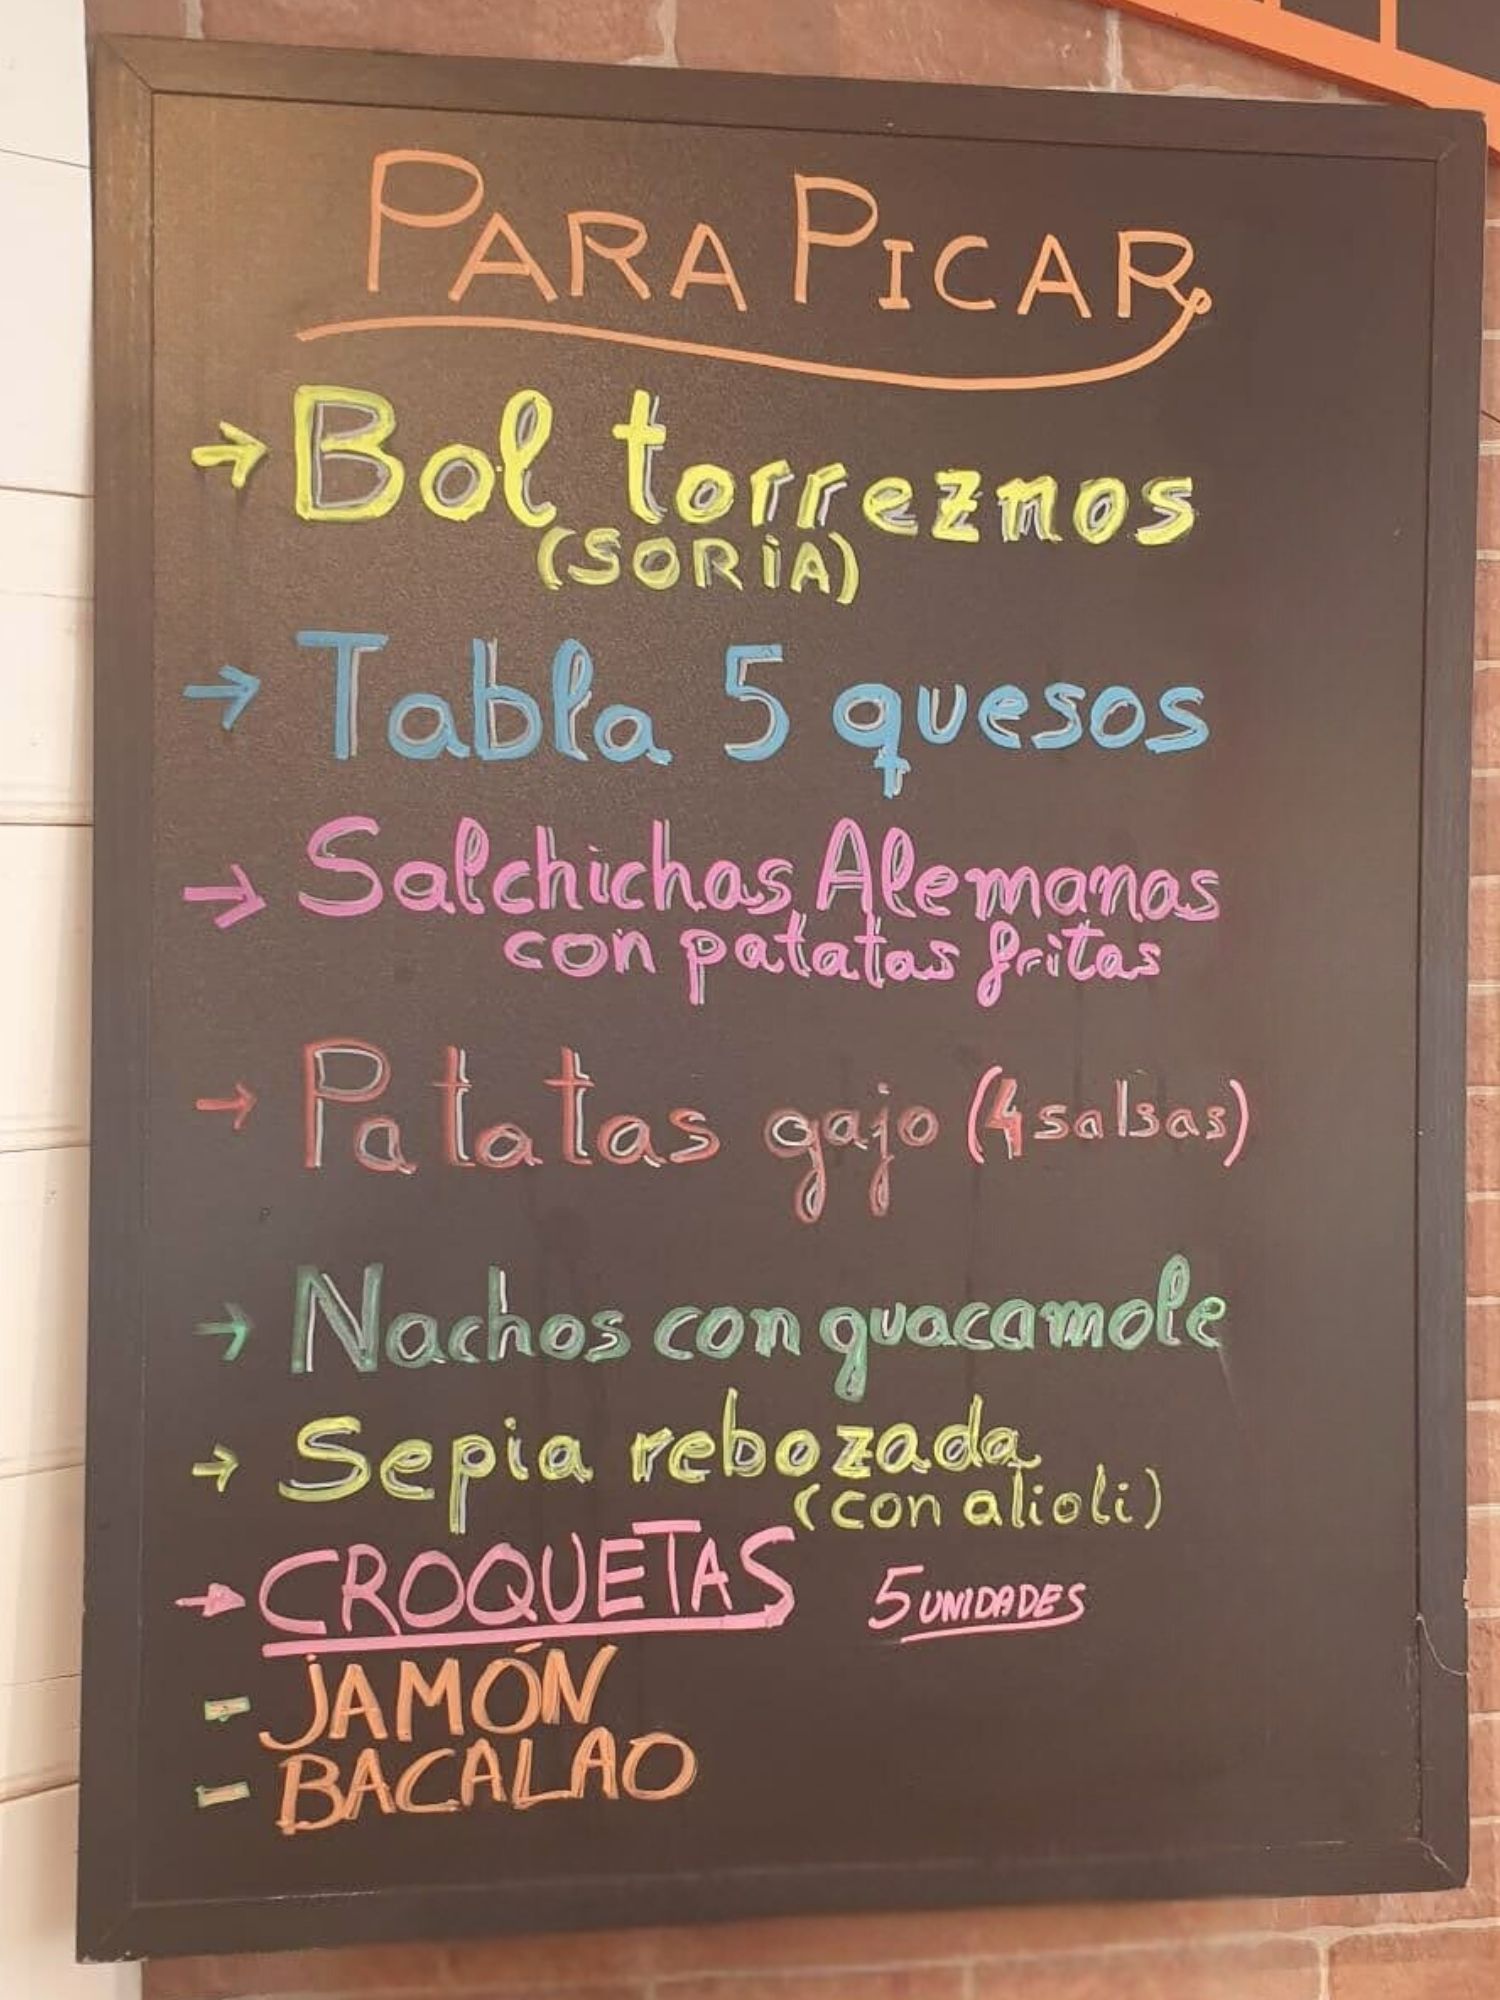 PARA PICAR
→ Bol torreznos
(SORIA)
→ Tabla 5 quesos
→ Salchichas Alemanas
con patatas fritas
→ Patatas gajo (4 salsas)
→ Nachos con guacamole
→ Sepia rebozada
(con alioli)
→ CROQUETAS 5 UNIDADES
- JAMÓN
- BACALAO